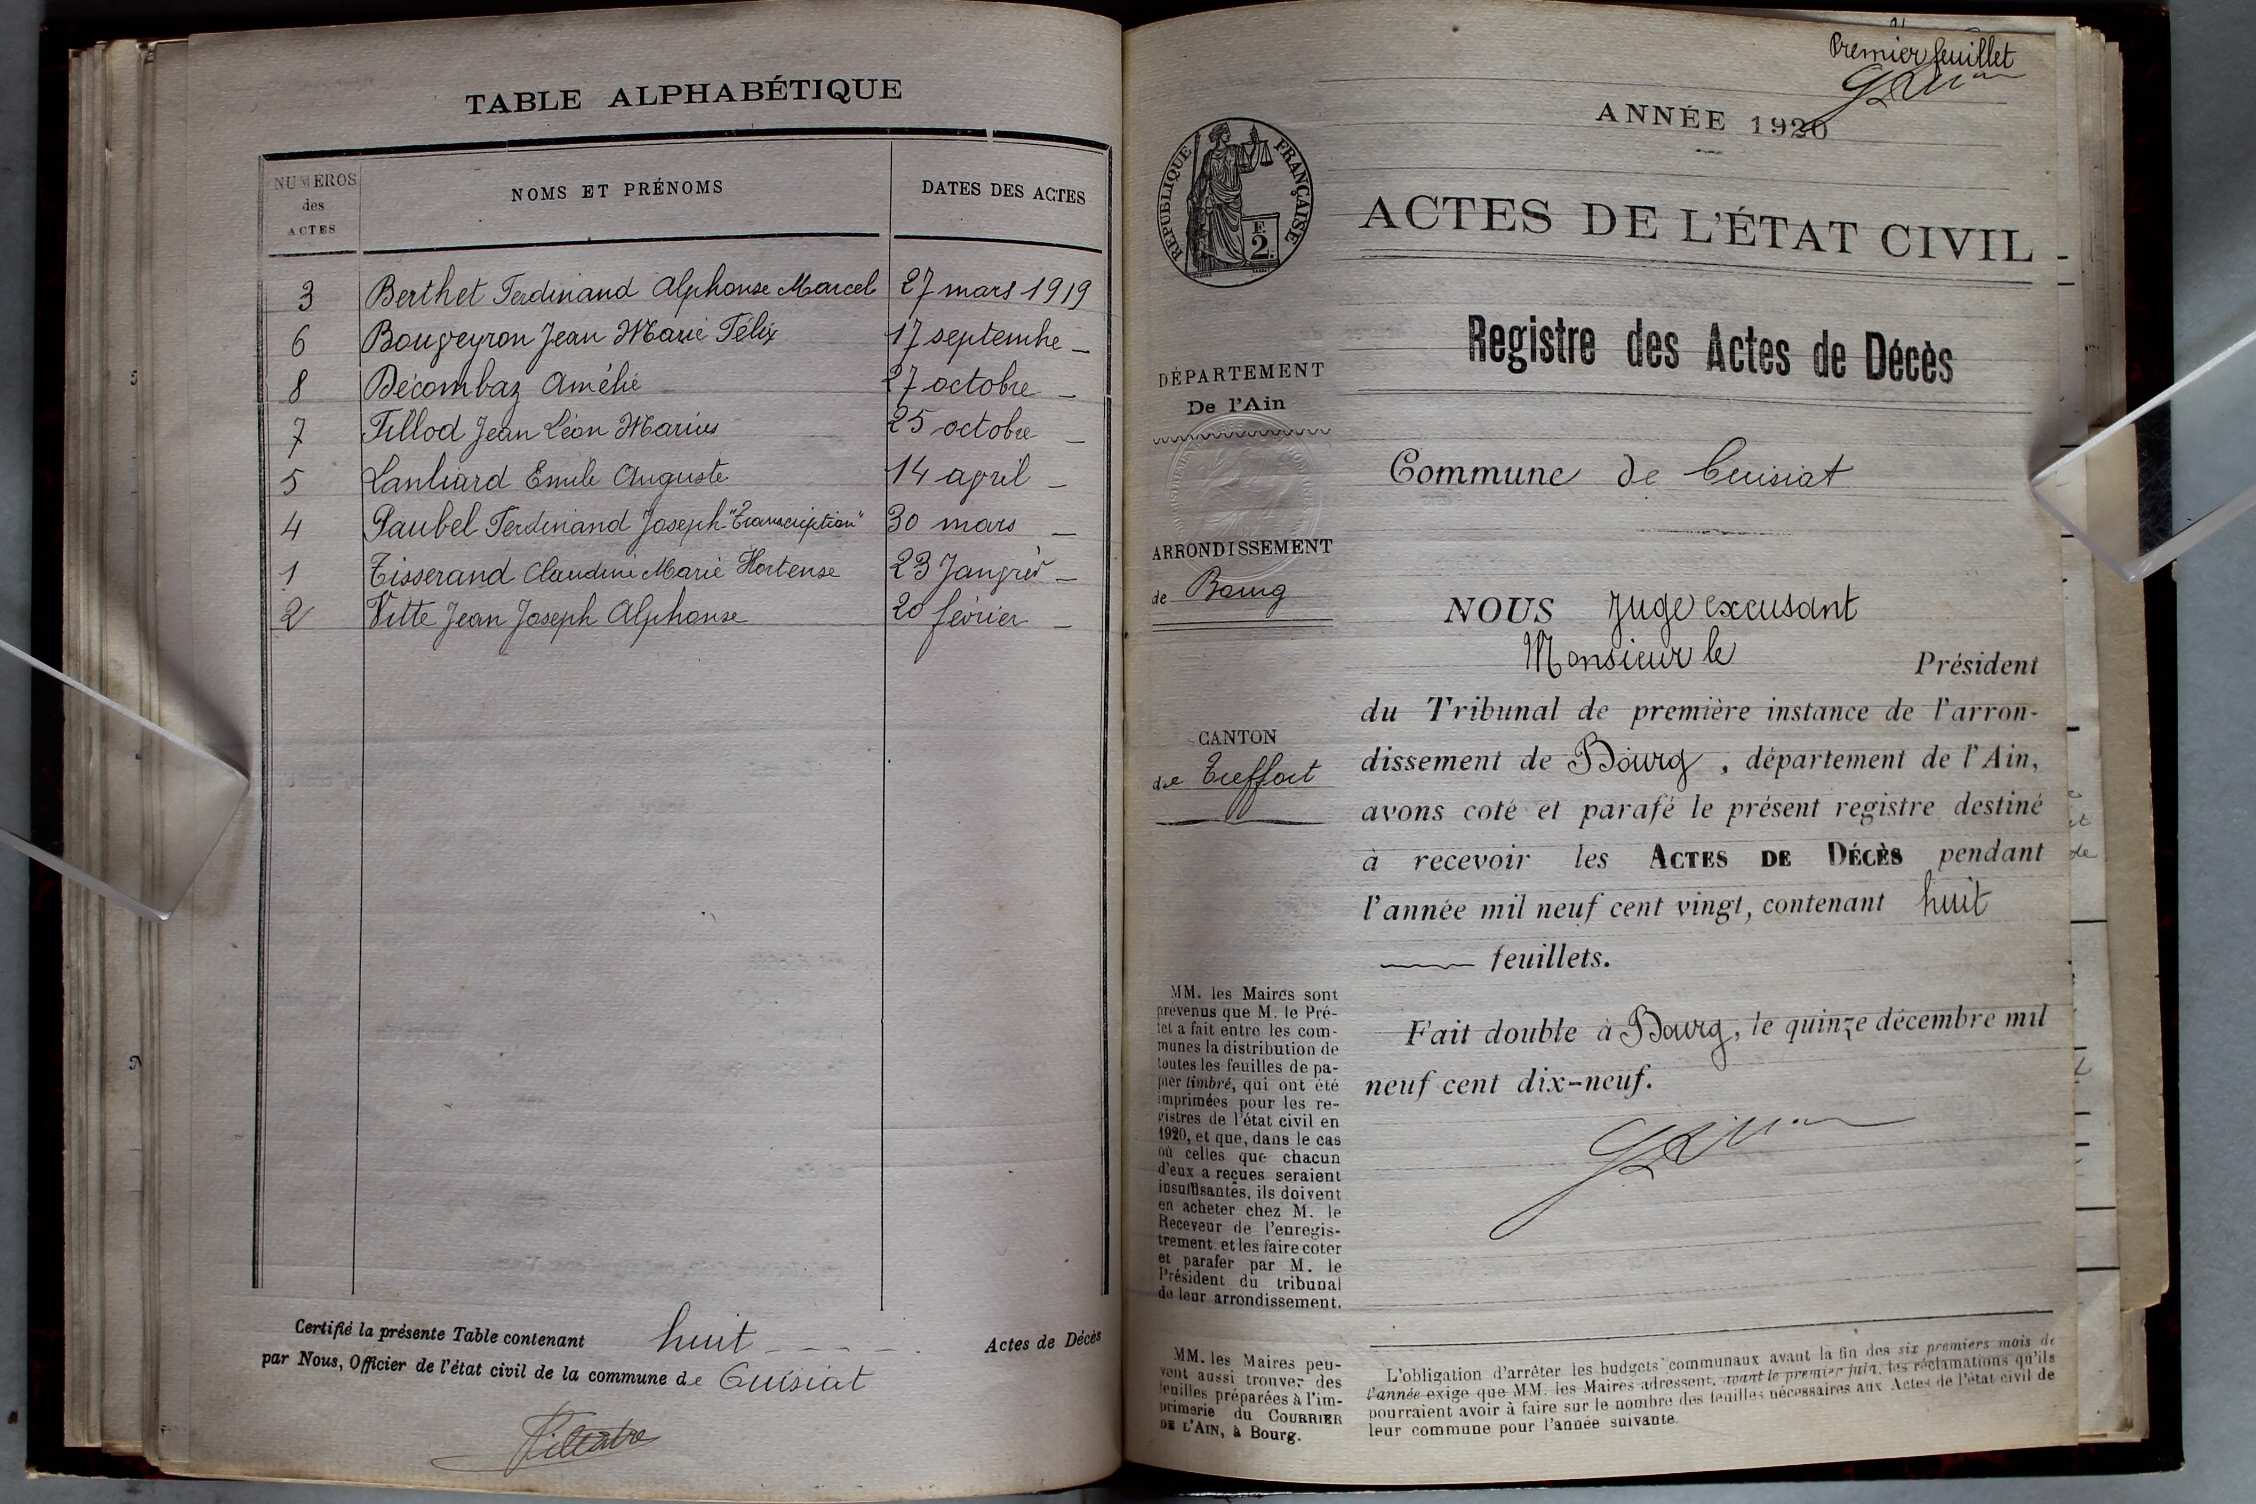 TABLE ALPHABÉTIQUE
NUMEROS des ACTES
NOMS ET PRÉNOMS
DATES DES ACTES
3 Berthet Ferdinand Alphonse Marcel 27 mars 1919
6 Bouveyron Jean Marie Félix 17 septembre —
8 Décombaz Amélie 27 octobre —
7 Fillod Jean Léon Marius 25 octobre —
5 Lanliard Emile Auguste 14 avril —
4 Paubel Ferdinand Joseph "Transcription" 30 mars —
1 Tisserand Claudine Marie Hortense 23 Janvier —
2 Vitte Jean Joseph Alphonse 20 février —
Certifié la présente Table contenant huit Actes de Décès
par Nous, Officier de l'état civil de la commune de Cuisiat
Premier feuillet
ANNÉE 1920
RÉPUBLIQUE FRANÇAISE
F.
2.
ACTES DE L'ÉTAT CIVIL
Registre des Actes de Décès
DÉPARTEMENT
De l'Ain
Commune de Cuisiat
ARRONDISSEMENT
de Bourg
CANTON
de Treffort
NOUS Juge excusant
Monsieur le Président
du Tribunal de première instance de l'arron-
dissement de Bourg, département de l'Ain,
avons coté et parafé le présent registre destiné
à recevoir les ACTES DE DÉCÈS pendant
l'année mil neuf cent vingt, contenant huit
feuillets.
Fait double à Bourg, le quinze décembre mil
neuf cent dix-neuf.
MM. les Maires sont
prévenus que M. le Pré-
fet a fait entre les com-
munes la distribution de
toutes les feuilles de pa-
pier timbré, qui ont été
imprimées pour les re-
gistres de l'état civil en
1920, et que, dans le cas
où celles que chacun
d'eux a reçues seraient
insuffisantes, ils doivent
en acheter chez M. le
Receveur de l'enregis-
trement et les faire coter
et parafer par M. le
Président du tribunal
de leur arrondissement.
MM. les Maires peu-
vent aussi trouver des
feuilles préparées à l'im-
primerie du COURRIER
DE L'AIN, à Bourg.
L'obligation d'arrêter les budgets communaux avant la fin des six premiers mois de
l'année exige que MM. les Maires adressent, avant le premier juin, les réclamations qu'ils
pourraient avoir à faire sur le nombre des feuilles nécessaires aux Actes de l'état civil de
leur commune pour l'année suivante.